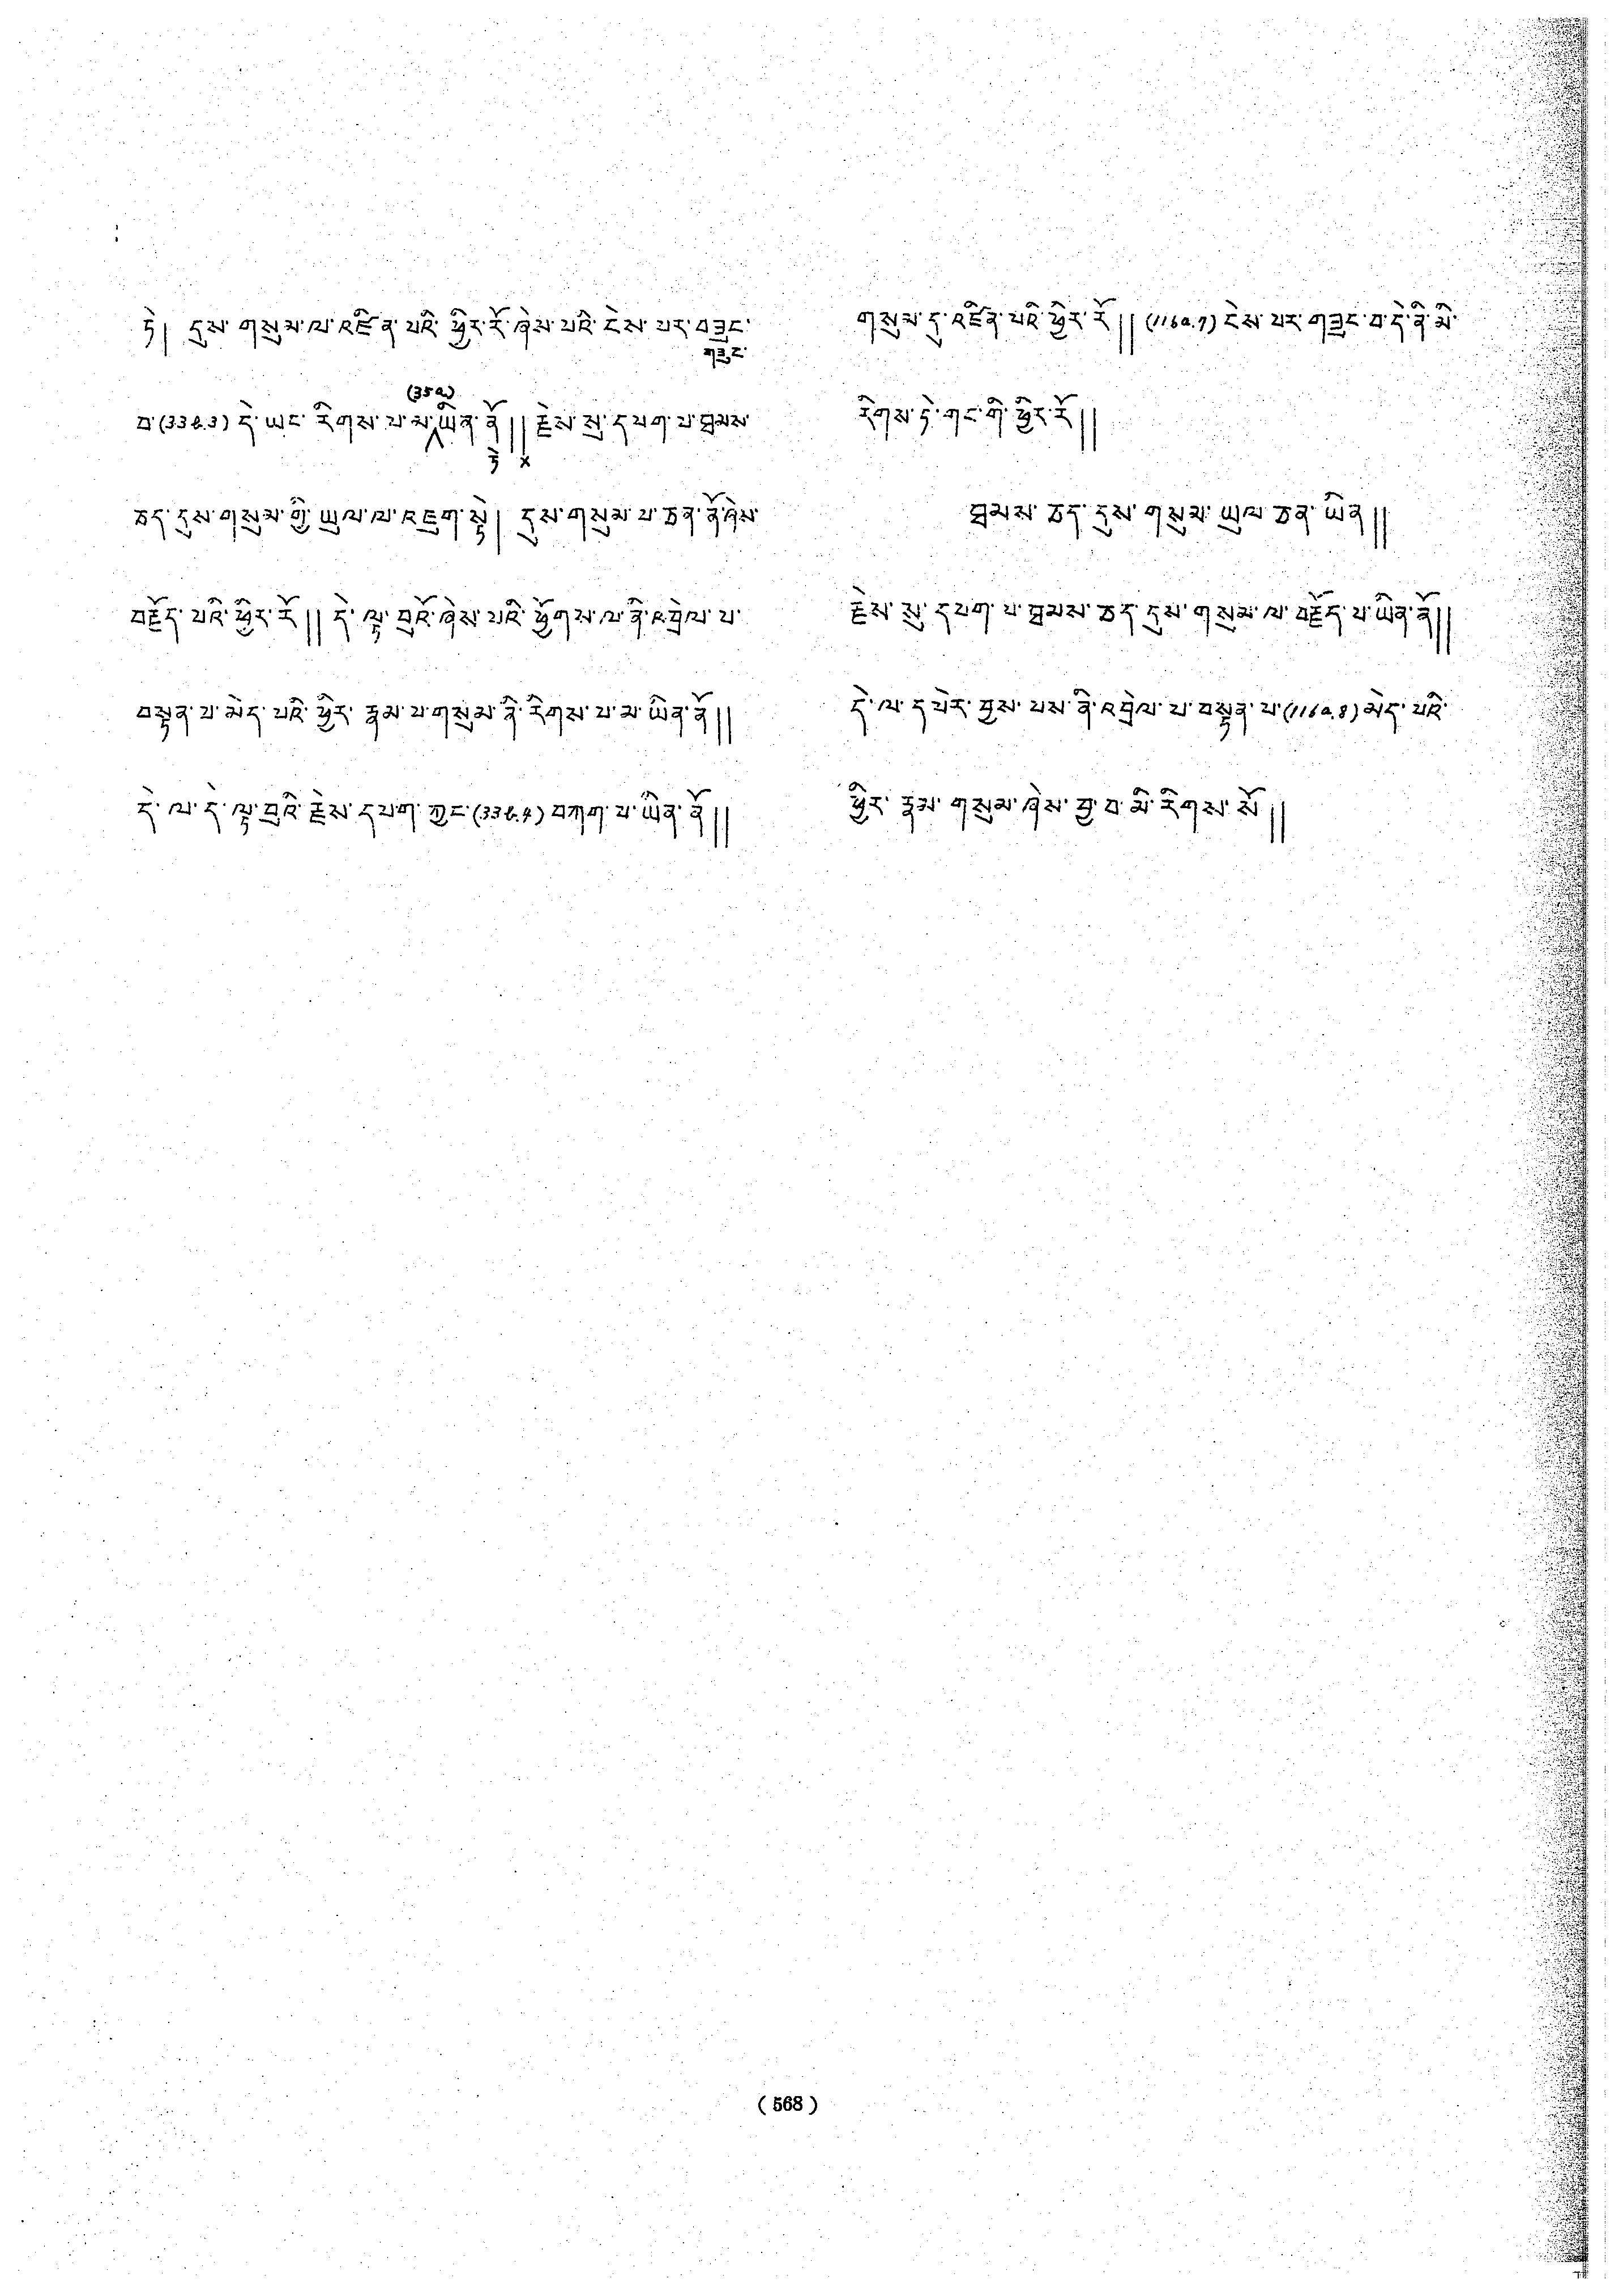 ཏེ། དུས་གསུམ་ལ་འཛིན་པའི་ཕྱིར་རོ་ཞེས་པའི་ངེས་པར་བཟུང་
གཟུང་
(35a)
བ་(33b.3) དེ་ཡང་རིགས་པ་མ་ཡིན་ནོ།། རྗེས་སུ་དཔག་པ་ཐམས་
ཏེ x
ཅད་དུས་གསུམ་གྱི་ཡུལ་ལ་འཇུག་སྟེ། དུས་གསུམ་པ་ཅན་ནོ་ཞེས་
བརྗོད་པའི་ཕྱིར་རོ།། དེ་ལྟ་བུའོ་ཞེས་པའི་ཕྱོགས་ལ་ནི་འབྲེལ་པ་
བསྟན་པ་མེད་པའི་ཕྱིར་རྣམ་པ་གསུམ་ནི་རིགས་པ་མ་ཡིན་ནོ།།
དེ་ལ་དེ་ལྟ་བུའི་རྗེས་དཔག་ཀྱང་(33b.4) བཀག་པ་ཡིན་ནོ།།
གསུམ་དུ་འཛིན་པའི་ཕྱིར་རོ།། (116a.7) ངེས་པར་གཟུང་བ་དེ་ནི་མི་
རིགས་ཏེ་གང་གི་ཕྱིར་རོ།།
ཐམས་ཅད་དུས་གསུམ་ཡུལ་ཅན་ཡིན།།
རྗེས་སུ་དཔག་པ་ཐམས་ཅད་དུས་གསུམ་ལ་བརྗོད་པ་ཡིན་ནོ།།
དེ་ལ་དཔེར་བྱས་པས་ནི་འབྲེལ་པ་བསྟན་པ་(116a.8) མེད་པའི་
ཕྱིར་རྣམ་གསུམ་ཞེས་བྱ་བ་མི་རིགས་སོ།།
( 568 )